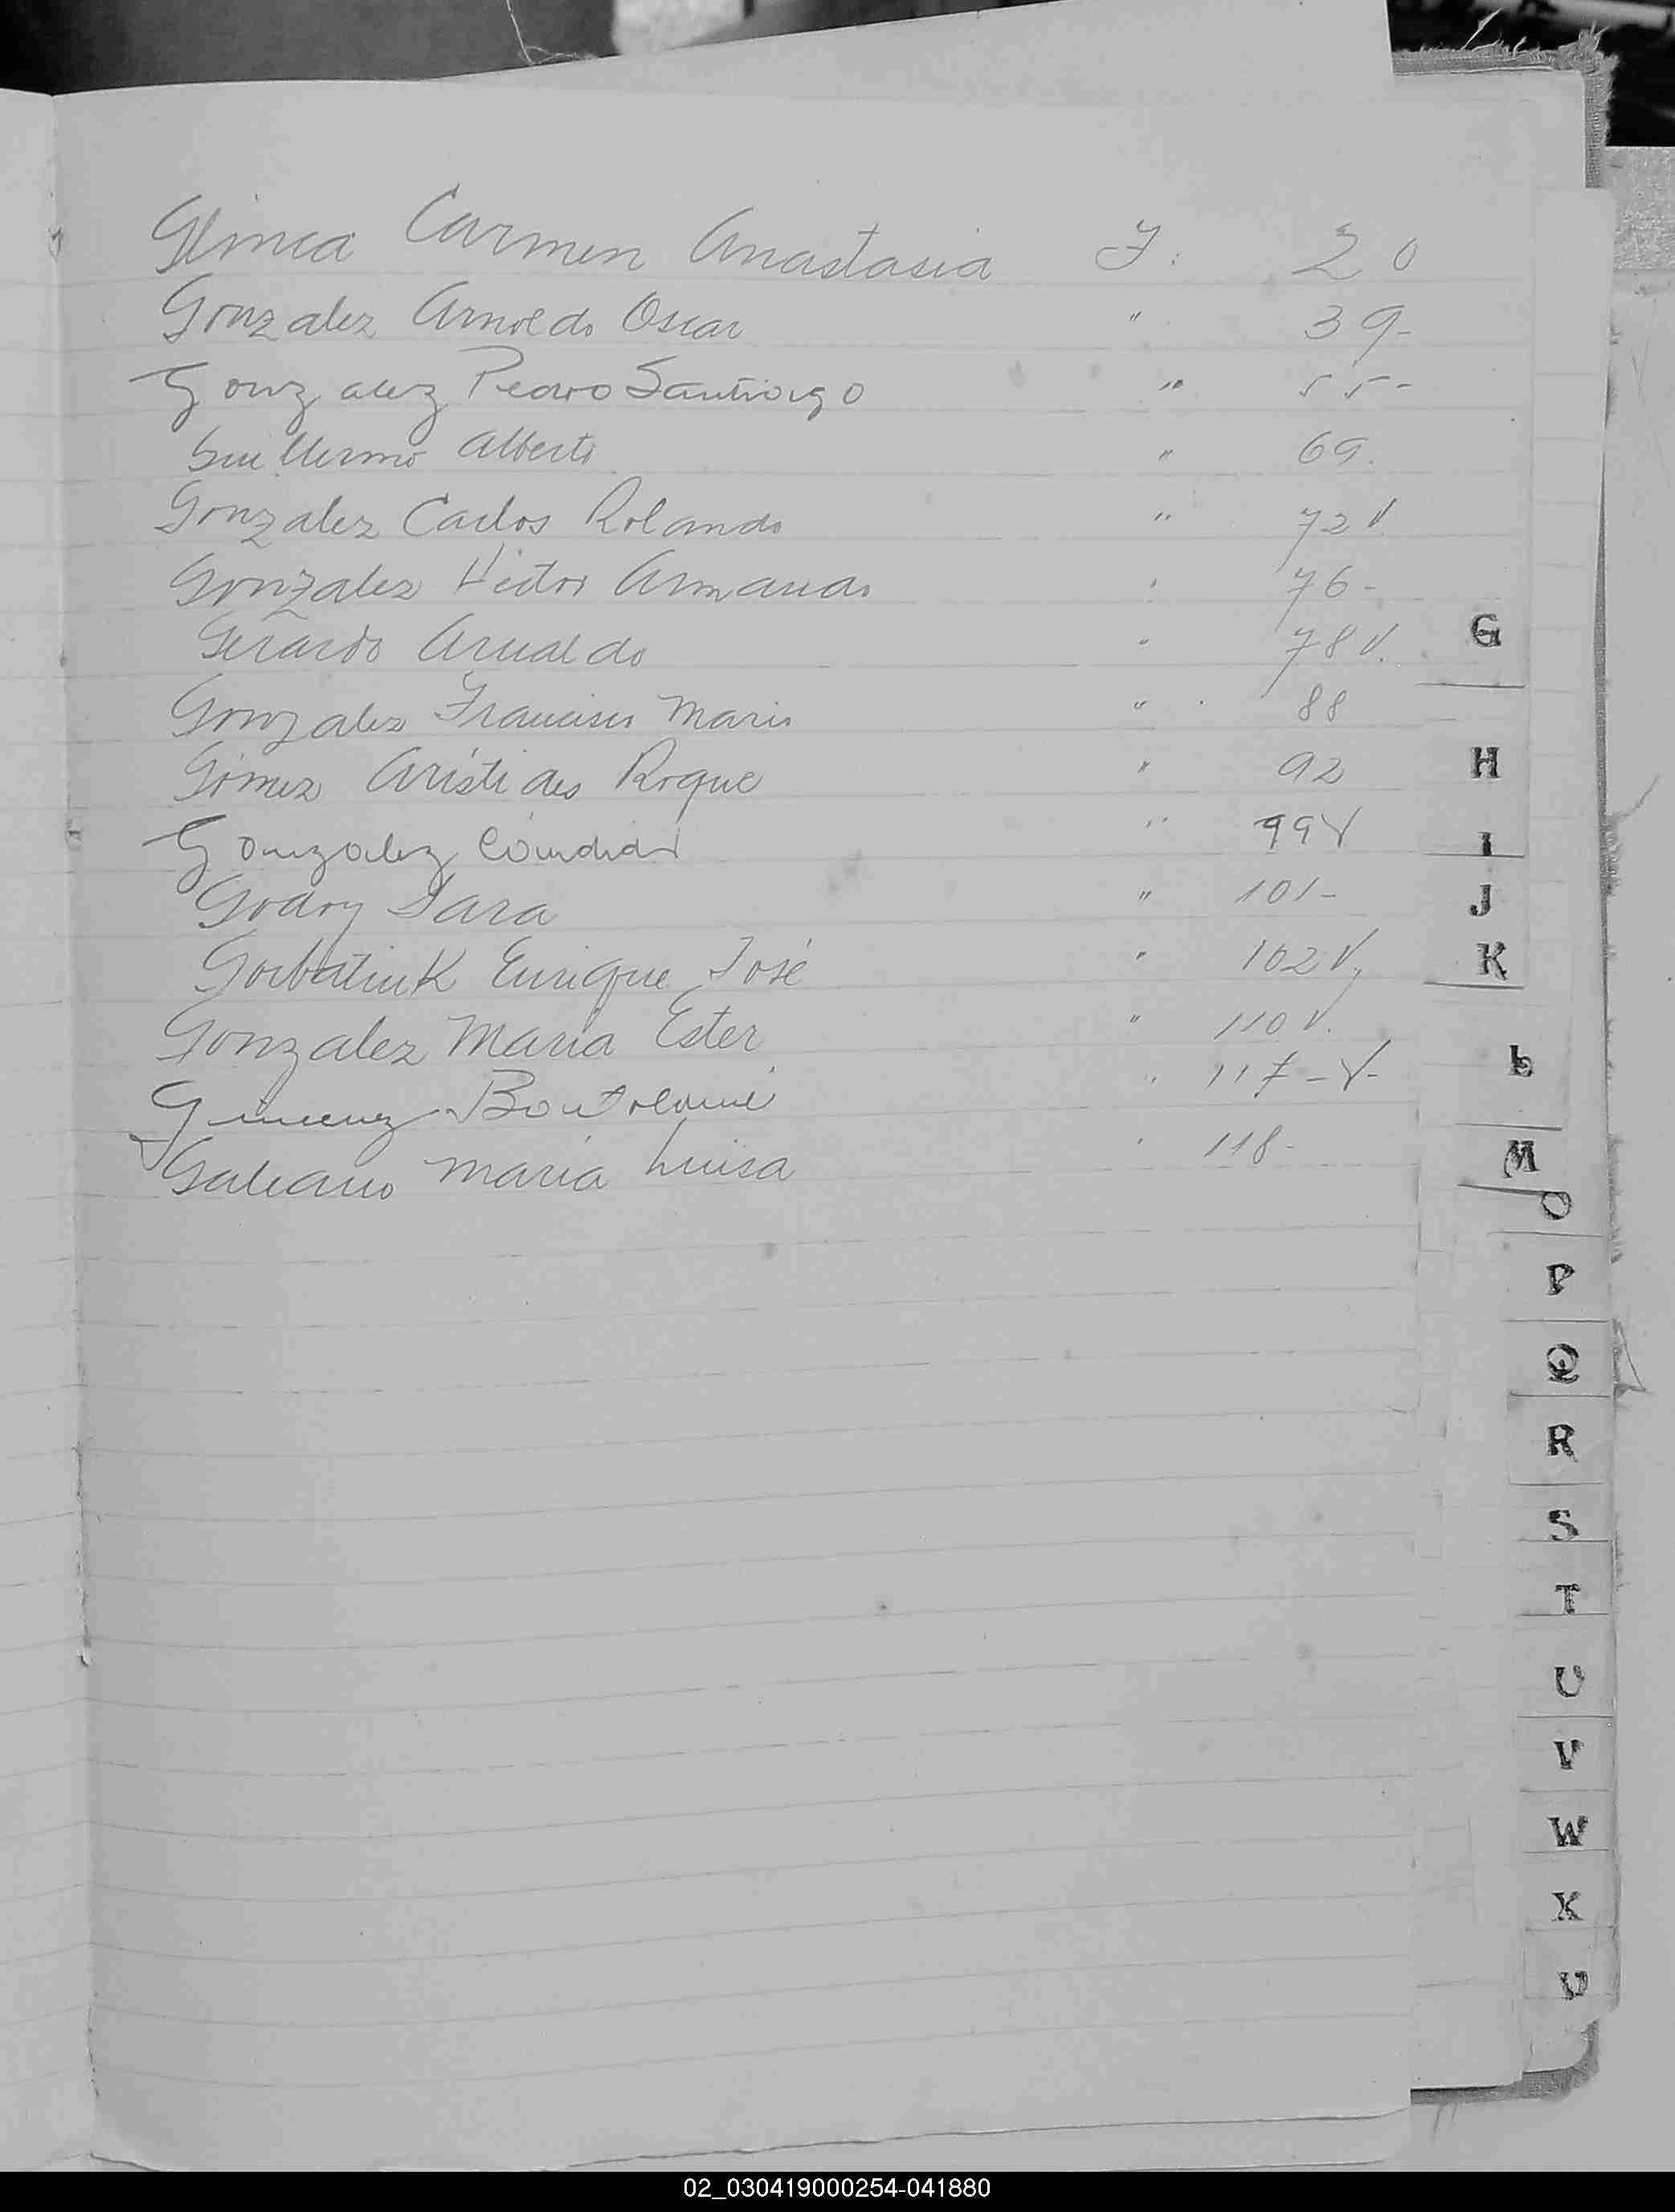 Glinca Carmen Anastasia F. 20
Gonzalez Arnoldo Oscar " 39-
Gonzalez Pedro Santiago " 55-
Guillermo Alberto " 69.
Gonzalez Carlos Rolando " 72 V
Gonzalez Hector Armando " 76-
Gerardo Arnaldo " 78 V.
Gonzalez Francisco Mario " 88
Gómez Arístides Roque " 92
Gonzalez Candida " 99 V
Godoy Sara " 101-
Gorbatiuk Enrique José " 102 V
Gonzalez Maria Ester " 110 V.
Gimenez " 117-V-
Galeano Maria Luisa " 118-
G
H
I
J
K
L
M
O
P
Q
R
S
T
U
V
W
X
02_030419000254-041880